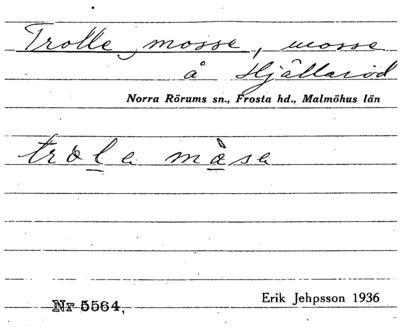 Trolle, mosse, mosse
å Hjällaröd
Norra Rörums sn., Frosta hd., Malmöhus län
trola måsa
Erik Jehpsson 1936
Nr 5564,